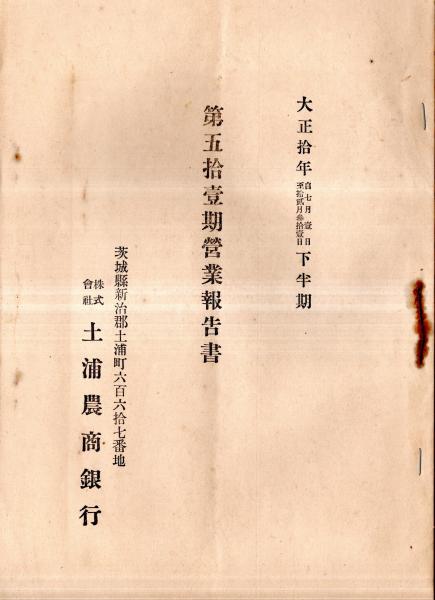 大正拾年自七月壹日至拾貳月參拾壹日下半期
第五拾壹期營業報告書
茨城縣新治郡土浦町六百六拾七番地
株式會社土浦農商銀行